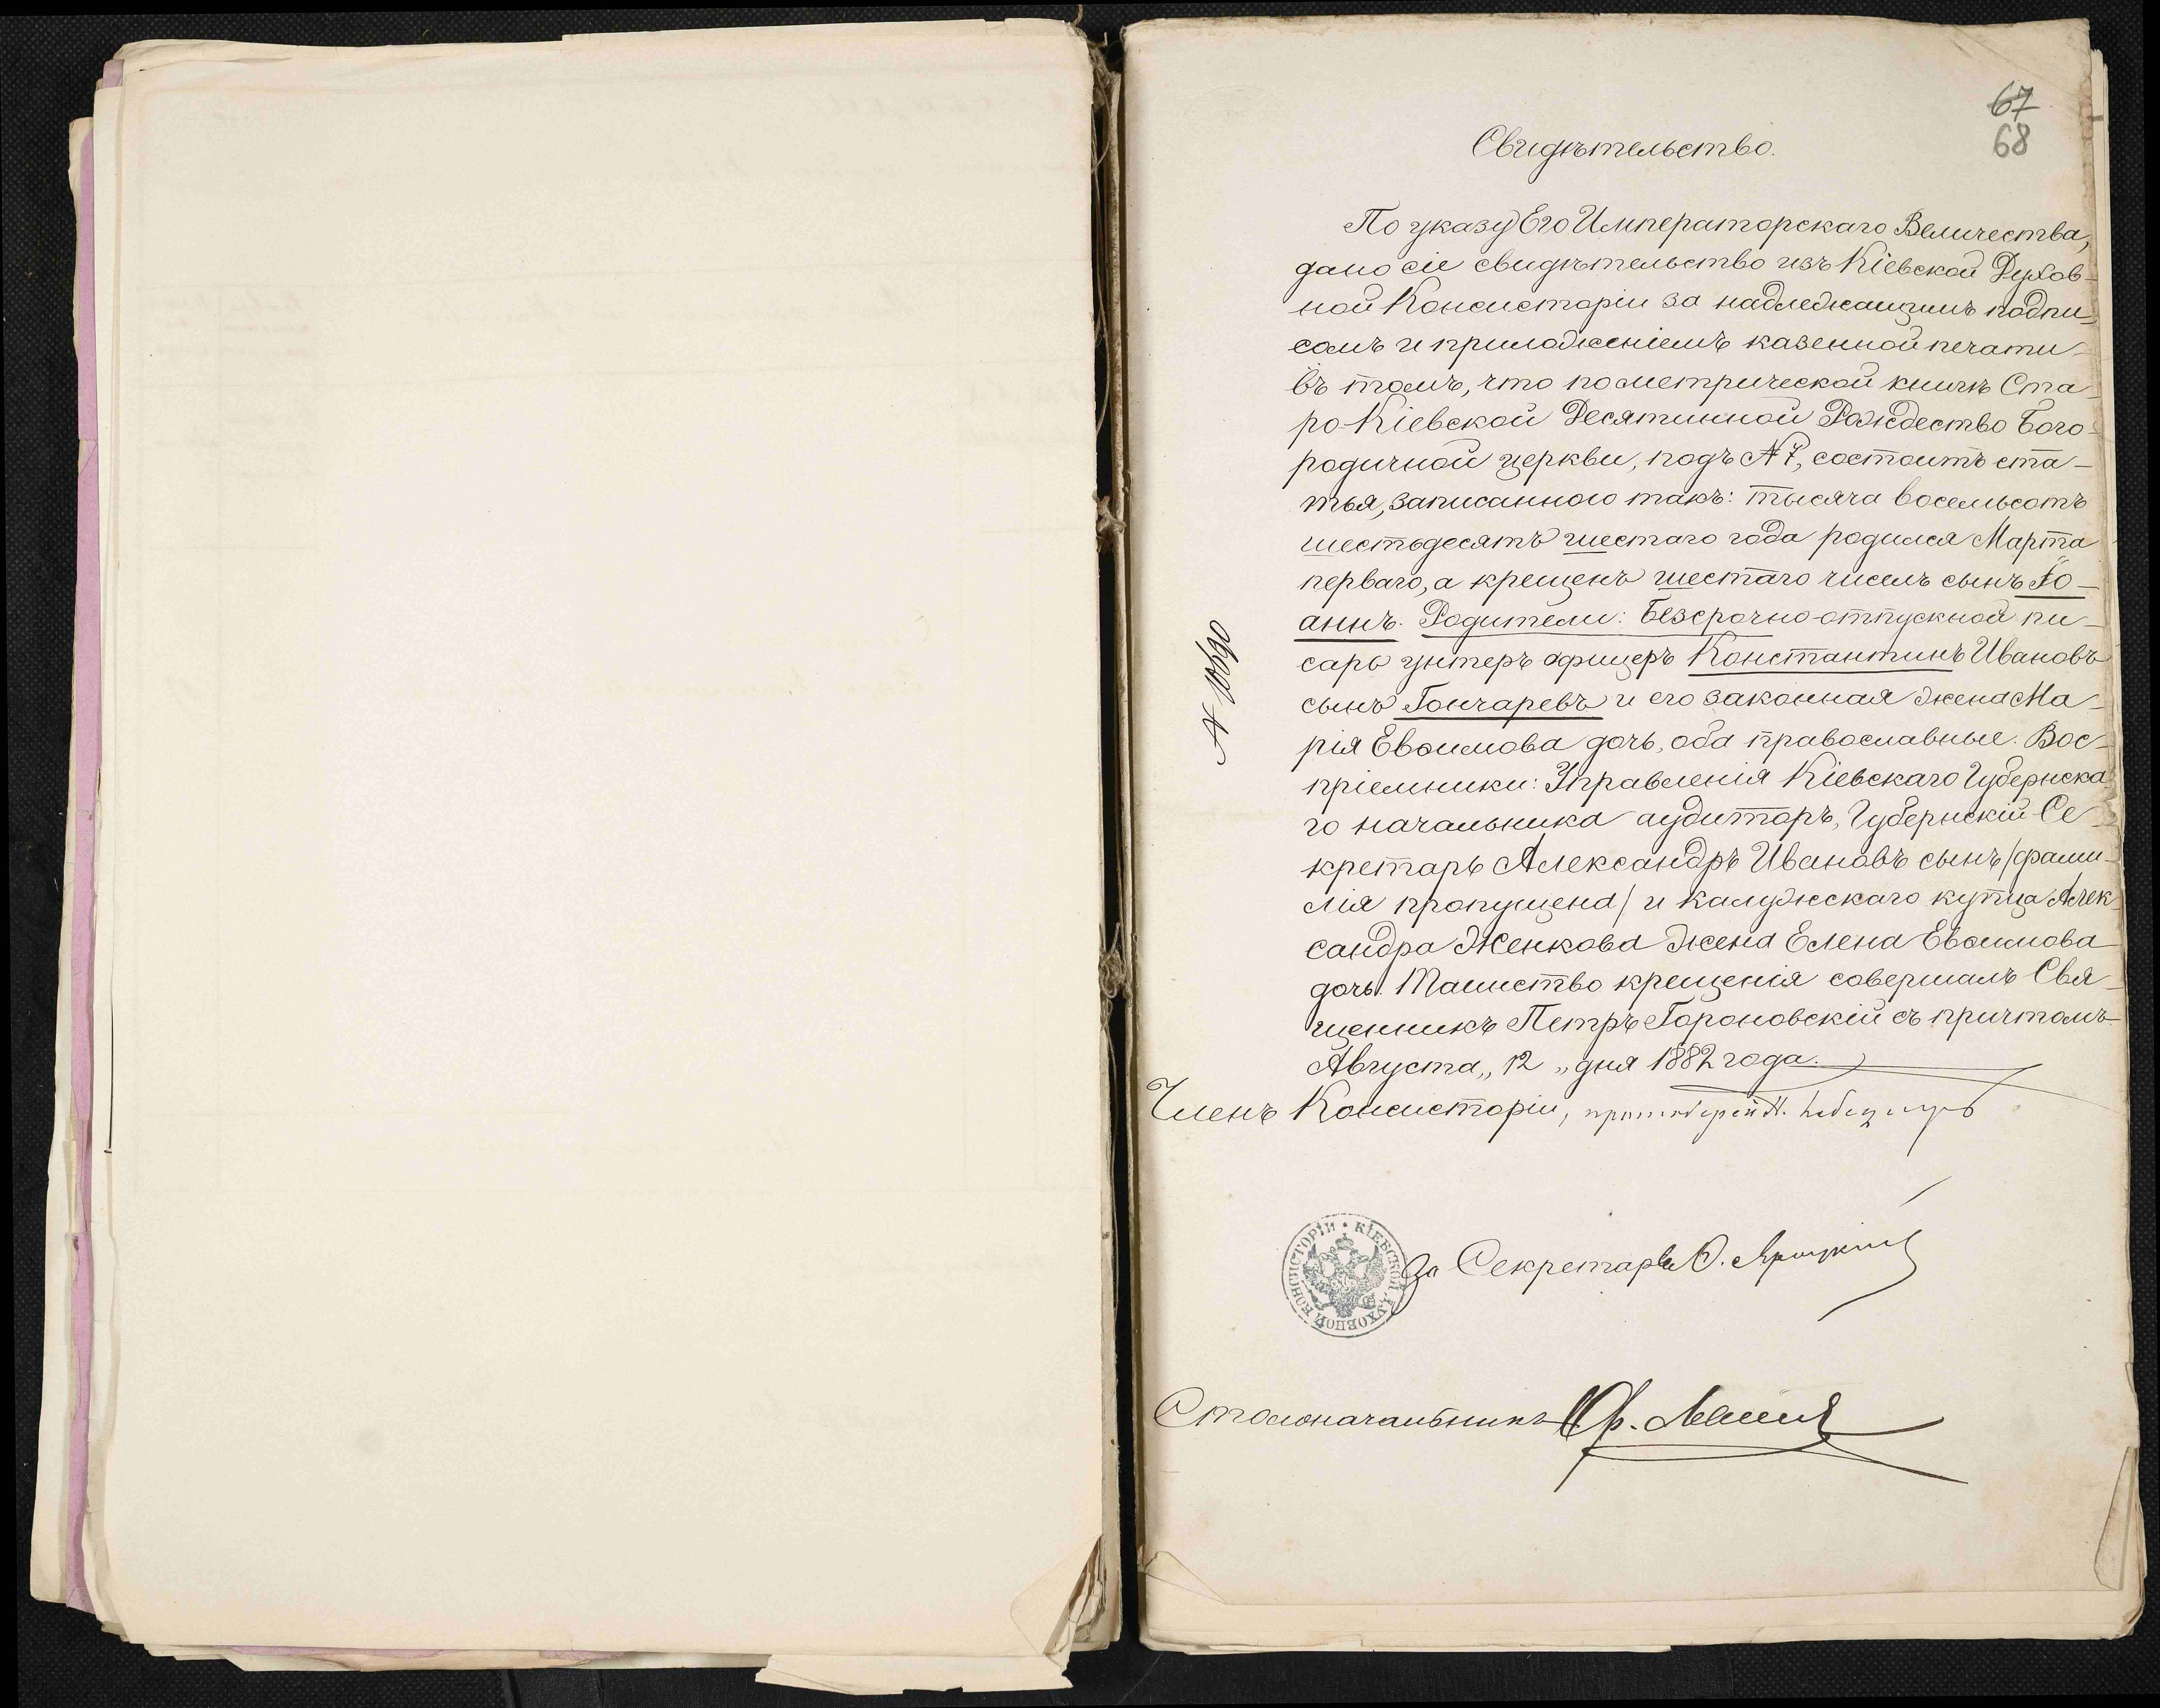 67
68
Свидѣтельство.
По указу Его Императорскаго Величества,
дано сіе свидѣтельство изъ Кіевской Духов-
ной Консисторіи за надлежащимъ подпи-
сомъ и приложеніемъ казенной печати
въ томъ, что по метрической книгѣ Ста-
ро-Кіевской Десятинной Рождество Бого-
родичной церкви, подъ № 7, состоитъ ста-
тья, записанною такъ: тысяча восемьсотъ
шестьдесятъ шестаго года родился Марта
перваго, а крещенъ шестаго чиселъ сынъ Іо-
аннъ. Родители: Безсрочно-отпускной пи-
сарь унтеръ офицеръ Константинъ Ивановъ
сынъ Гончаревъ и его законная жена Ма-
рія Евѳимова дочь, оба православные. Вос-
пріемники: Управленія Кіевскаго Губернска-
го начальника аудиторъ, Губернскій Се-
кретарь Александръ Ивановъ сынъ /фами-
лія пропущена/ и калужскаго купца Алек-
сандра Женкова жена Елена Евѳимова
дочь. Таинство крещенія совершалъ Свя-
щенникъ Петръ Гороновскій съ причтомъ
Августа „12„ дня 1882 года.
№ 10690
Членъ Консисторіи, протоіерей
КІЕВСКОЙ ДУХОВНОЙ КОНСИСТОРІИ
За Секретаря
Столоначальникъ